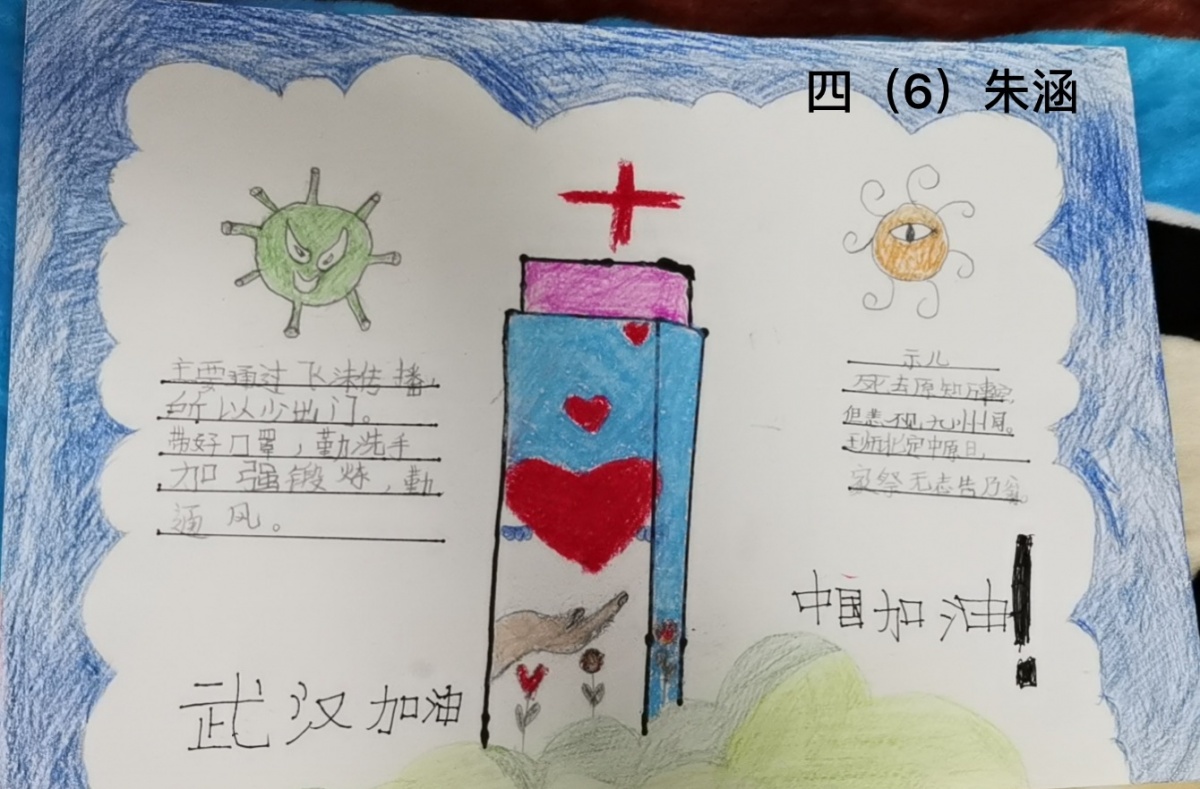 四（6）朱涵
主要通过飞沫传播，
所以少出门。
带好口罩，勤洗手
加强锻炼，勤
通风。
武汉加油
示儿
死去原知万事空，
但悲不见九州同。
王师北定中原日，
家祭无忘告乃翁。
中国加油！